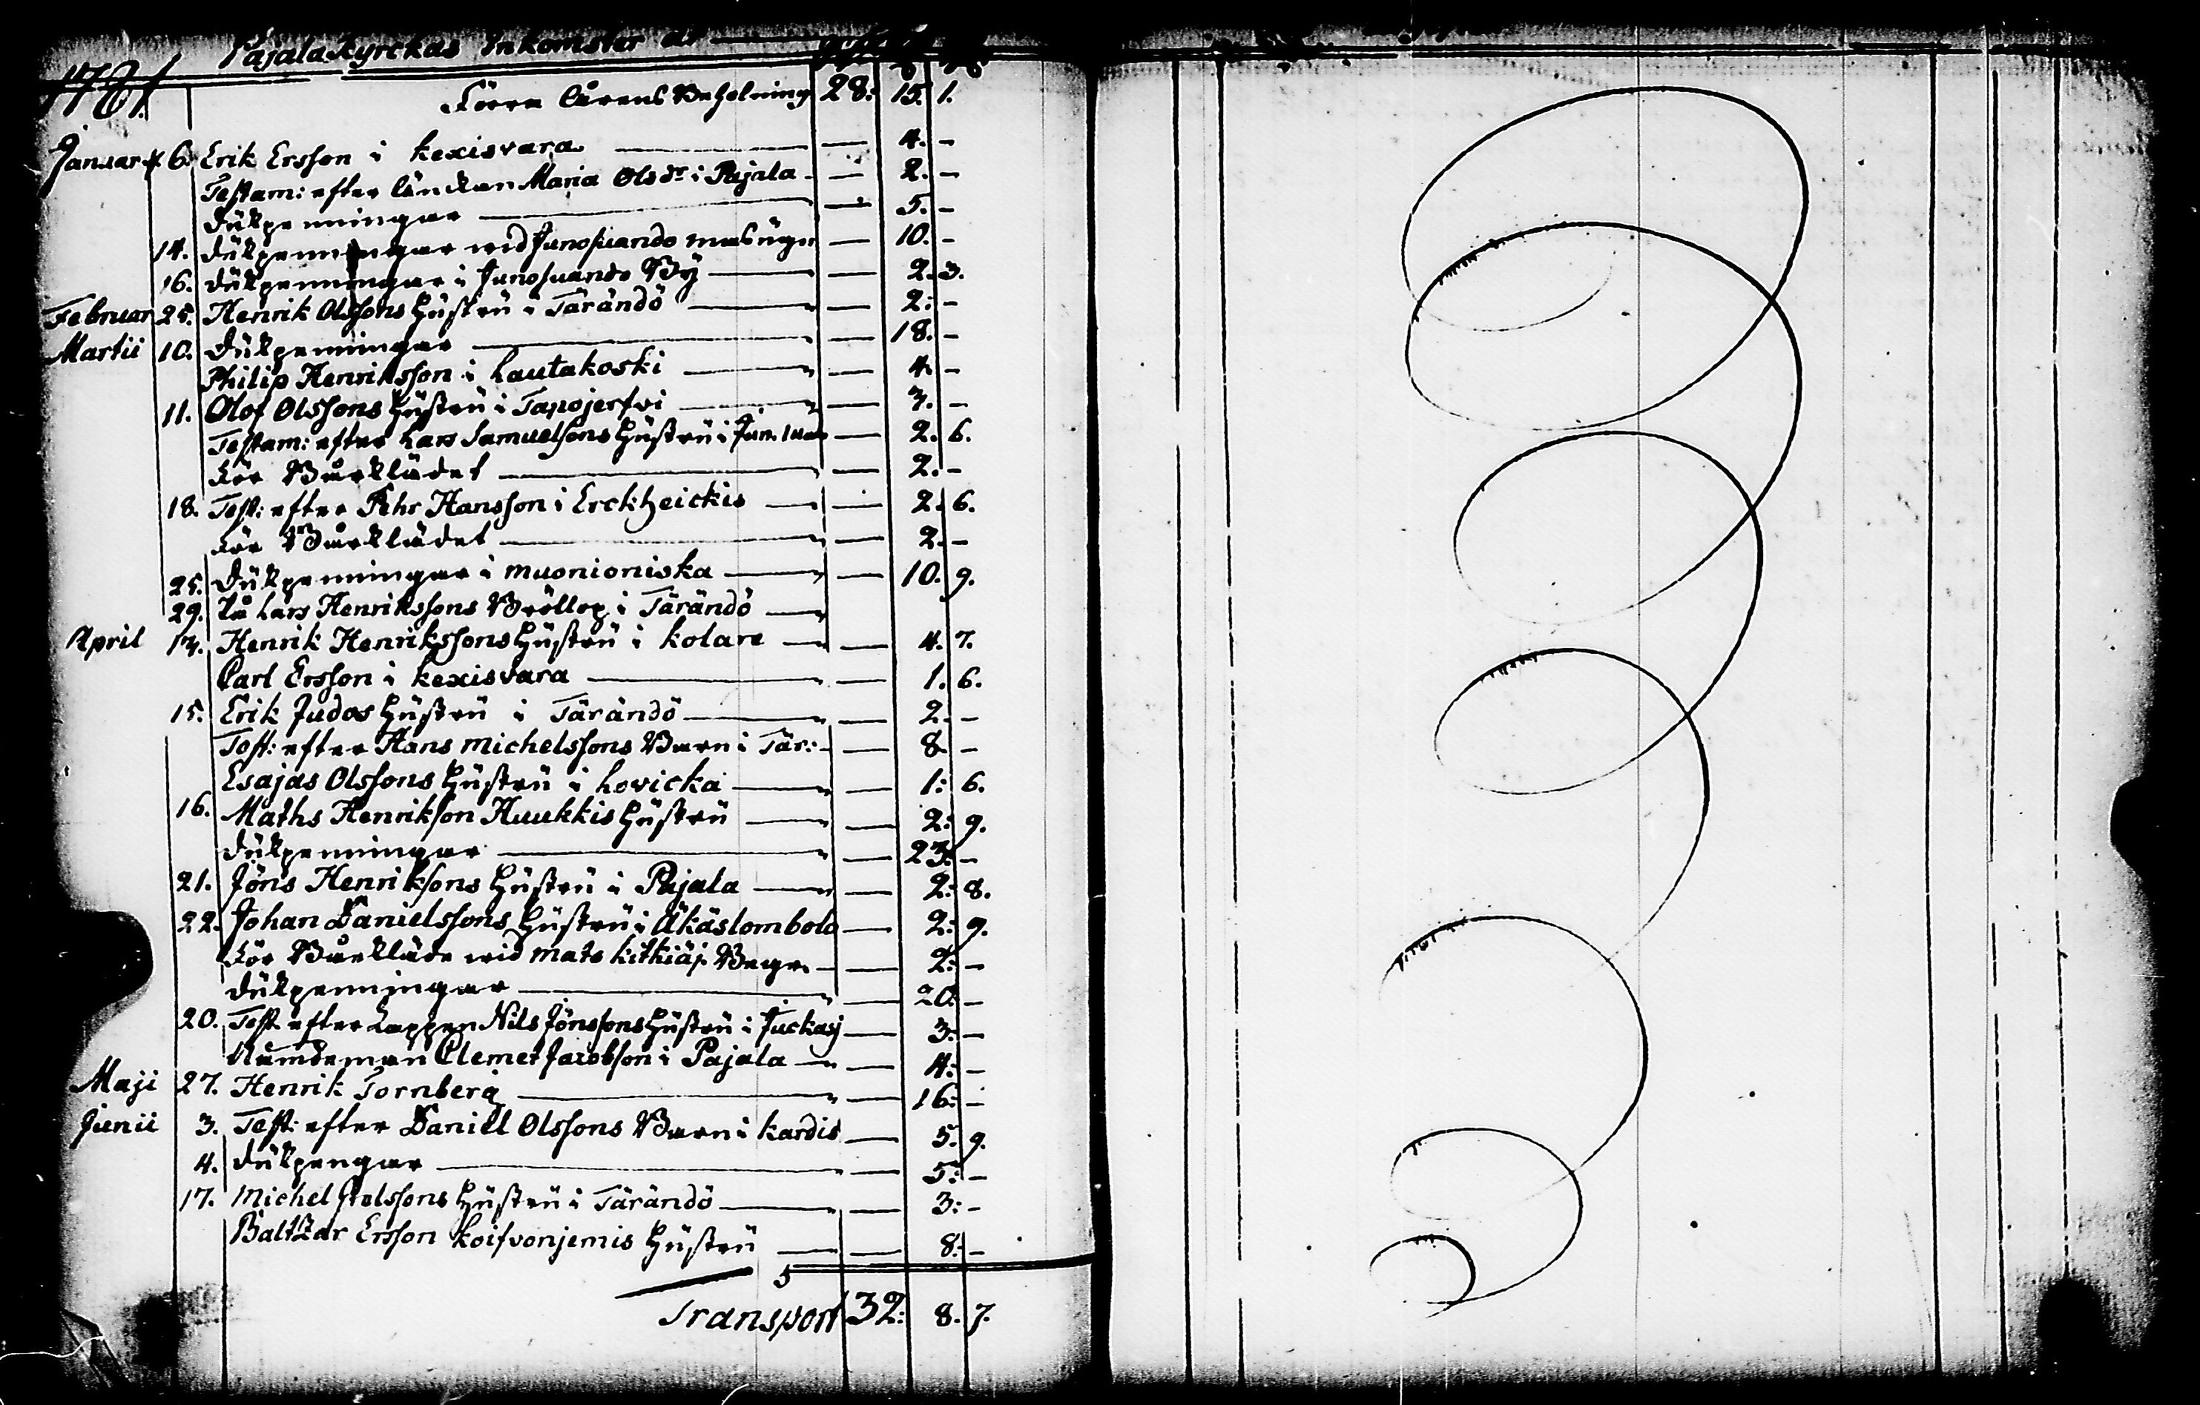 Pajala Kyrckas Inkomster
1781.
Förra Årens Beholning 28: 15. 1.
Januar 6. Erik Ersson i kexisvara — 4. –
Testam: efter Änckan Maria Olsdr i Pajala — 2. –
Hufpenningar — 5. –
14. Hufpenningar wid Junosuando masugn — 10. –
16. Hufpenningar i Junosuando By — 2. 3.
Februar 25. Henrik Olssons Hustru i Tärändö — 2: –
Martii 10. Hufpenningar — 18. –
Philip Henriksson i Lautakoski — 4. –
11. Olof Olssons Hustru i Tapojerfvi — 3. –
Testam: efter Lars Samuelsons Hustru i — 2. 6.
För Bårklädet — 2. –
18. Test: efter Pehr Hansson i Erckheickis — 2. 6.
För Bårklädet — 2. –
25. Hufpenningar i muonioniska — 10. 9.
29. Lars Henrikssons Bröllop i Tärändö —
April 14. Henrik Henrikssons Hustru i kolare — 4. 7.
Carl Ersson i kexisvara — 1. 6.
15. Erik Judas Hustru i Tärändö — 2. –
Test: efter Hans michelssons Barn i Tär: — 8 –
Esajas Olssons Hustru i Lovicka — 1: 6.
16. Maths Henrikson Huukkis Hustru — 2: 9.
Hufpenningar — 23: –
21. Jöns Henriksons Hustru i Pajala — 2: 8.
22. Johan Danielssons Hustru i Äkäslombolo — 2: 9.
För Bårkläde wid mats kitkiäj. Begr. — 2: –
Hufpenningar — 20: –
20. Test. efter Lappen Nils Jönssons Hustru i Juckasj — 3: –
Nämdeman Clemet Jacobson i Pajala — 4: –
Maji 27. Henrik Tornberg — 16: –
Junii 3. Test: efter Daniel Olssons Barn i kardis — 5. 9.
4. Hufpengar — 5: –
17. Michel Hustru i Tärändö — 3: –
Baltzar Ersson koifvonjemis Hustru — 8: –
Transport 32: 8. 7.